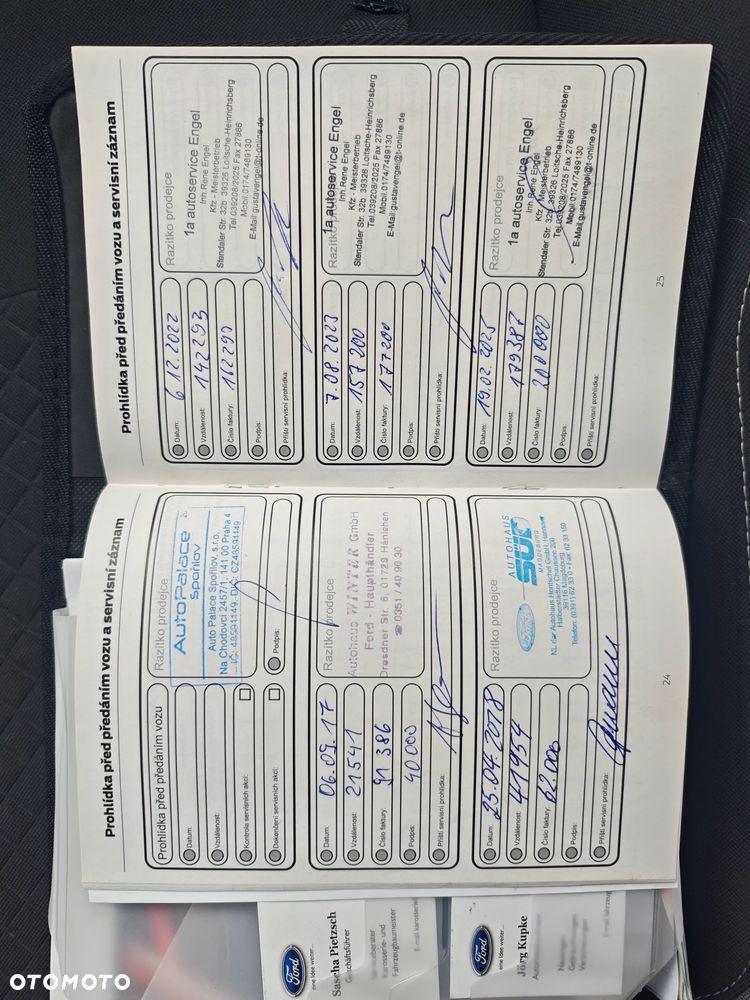 Prohlídka před předáním vozu a servisní záznam
Prohlídka před předáním vozu
Datum:
Vzdálenost:
Kontrola servisních akcí:
Dokončení servisních akcí:
Podpis:
Razítko prodejce
AutoPalace
Spořilov
Auto Palace Spořilov, s.r.o.
Na Chodovci 2457/1, 141 00 Praha 4
Datum: 06.09.17
Vzdálenost: 21541
Číslo faktury: 31386
Podpis: 40000
Příští servisní prohlídka:
Razítko prodejce
Autohaus WINTER GmbH
Ford - Haupthändler
Dresdner Str. 6, 01728 Hänichen
☎ 0351 / 40 90 90
Datum: 25.04.2018
Vzdálenost: 41954
Číslo faktury: 62.000
Podpis:
Příští servisní prohlídka:
Razítko prodejce
Ford
AUTOHAUS
SÜD
MAGDEBURG
NL der Autohaus Hentschel GmbH, Hannover
Halberstädter Chaussee 200
39116 Magdeburg
Telefon: (0391) 62 33 0 - Fax: 62 33 150
24
Prohlídka před předáním vozu a servisní záznam
Datum: 6.12.2022
Vzdálenost: 142293
Číslo faktury: 162293
Podpis:
Příští servisní prohlídka:
Razítko prodejce
1a autoservice Engel
Inh.Rene Engel
Kfz - Meisterbetrieb
Stendaler Str. 32b 39326 Loitsche-Heinrichsberg
Tel.039208/2025 Fax 27886
Mobil:0174/7489130
E-Mail:gustavengel@t-online.de
Datum: 7.08.2023
Vzdálenost: 157200
Číslo faktury: 177200
Podpis:
Příští servisní prohlídka:
Razítko prodejce
1a autoservice Engel
Inh.Rene Engel
Kfz - Meisterbetrieb
Stendaler Str. 32b 39326 Loitsche-Heinrichsberg
Tel.039208/2025 Fax 27886
Mobil:0174/7489130
E-Mail:gustavengel@t-online.de
Datum: 19.02.2025
Vzdálenost: 179387
Číslo faktury: 200000
Podpis:
Příští servisní prohlídka:
Razítko prodejce
1a autoservice Engel
Inh.Rene Engel
Kfz - Meisterbetrieb
Stendaler Str. 32b 39326 Loitsche-Heinrichsberg
Tel.039208/2025 Fax 27886
Mobil:0174/7489130
E-Mail:gustavengel@t-online.de
25
Ford
eine Idee weiter...
Sascha Pietzsch
Geschäftsführer
Karosserie- und
Fahrzeugbaumeister
Ford
eine Idee weiter...
Jörg Kupke
OTOMOTO